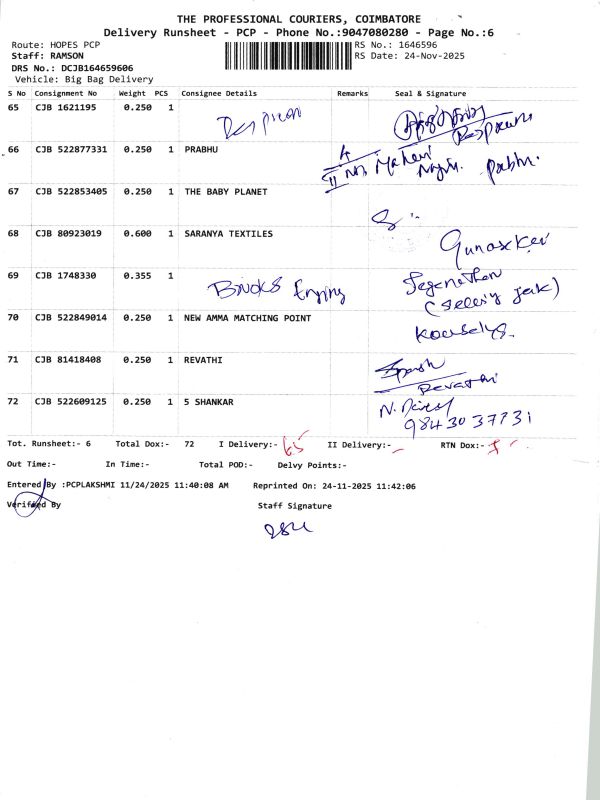 THE PROFESSIONAL COURIERS, COIMBATORE
Delivery Runsheet - PCP - Phone No.:9047080280 - Page No.:6
Route: HOPES PCP
RS No.: 1646596
Staff: RAMSON
RS Date: 24-Nov-2025
DRS No.: DCJB164659606
Vehicle: Big Bag Delivery
S No Consignment No Weight PCS Consignee Details Remarks Seal & Signature
65 CJB 1621195 0.250 1
66 CJB 522877331 0.250 1 PRABHU
prabhu.
67 CJB 522853405 0.250 1 THE BABY PLANET
68 CJB 80923019 0.600 1 SARANYA TEXTILES
69 CJB 1748330 0.355 1
70 CJB 522849014 0.250 1 NEW AMMA MATCHING POINT
71 CJB 81418408 0.250 1 REVATHI
Revathi
72 CJB 522609125 0.250 1 S SHANKAR
9843037731
Tot. Runsheet:- 6 Total Dox:- 72 I Delivery:- 65 II Delivery:- RTN Dox:-
Out Time:- In Time:- Total POD:- Delvy Points:-
Entered By :PCPLAKSHMI 11/24/2025 11:40:08 AM Reprinted On: 24-11-2025 11:42:06
Verified By Staff Signature